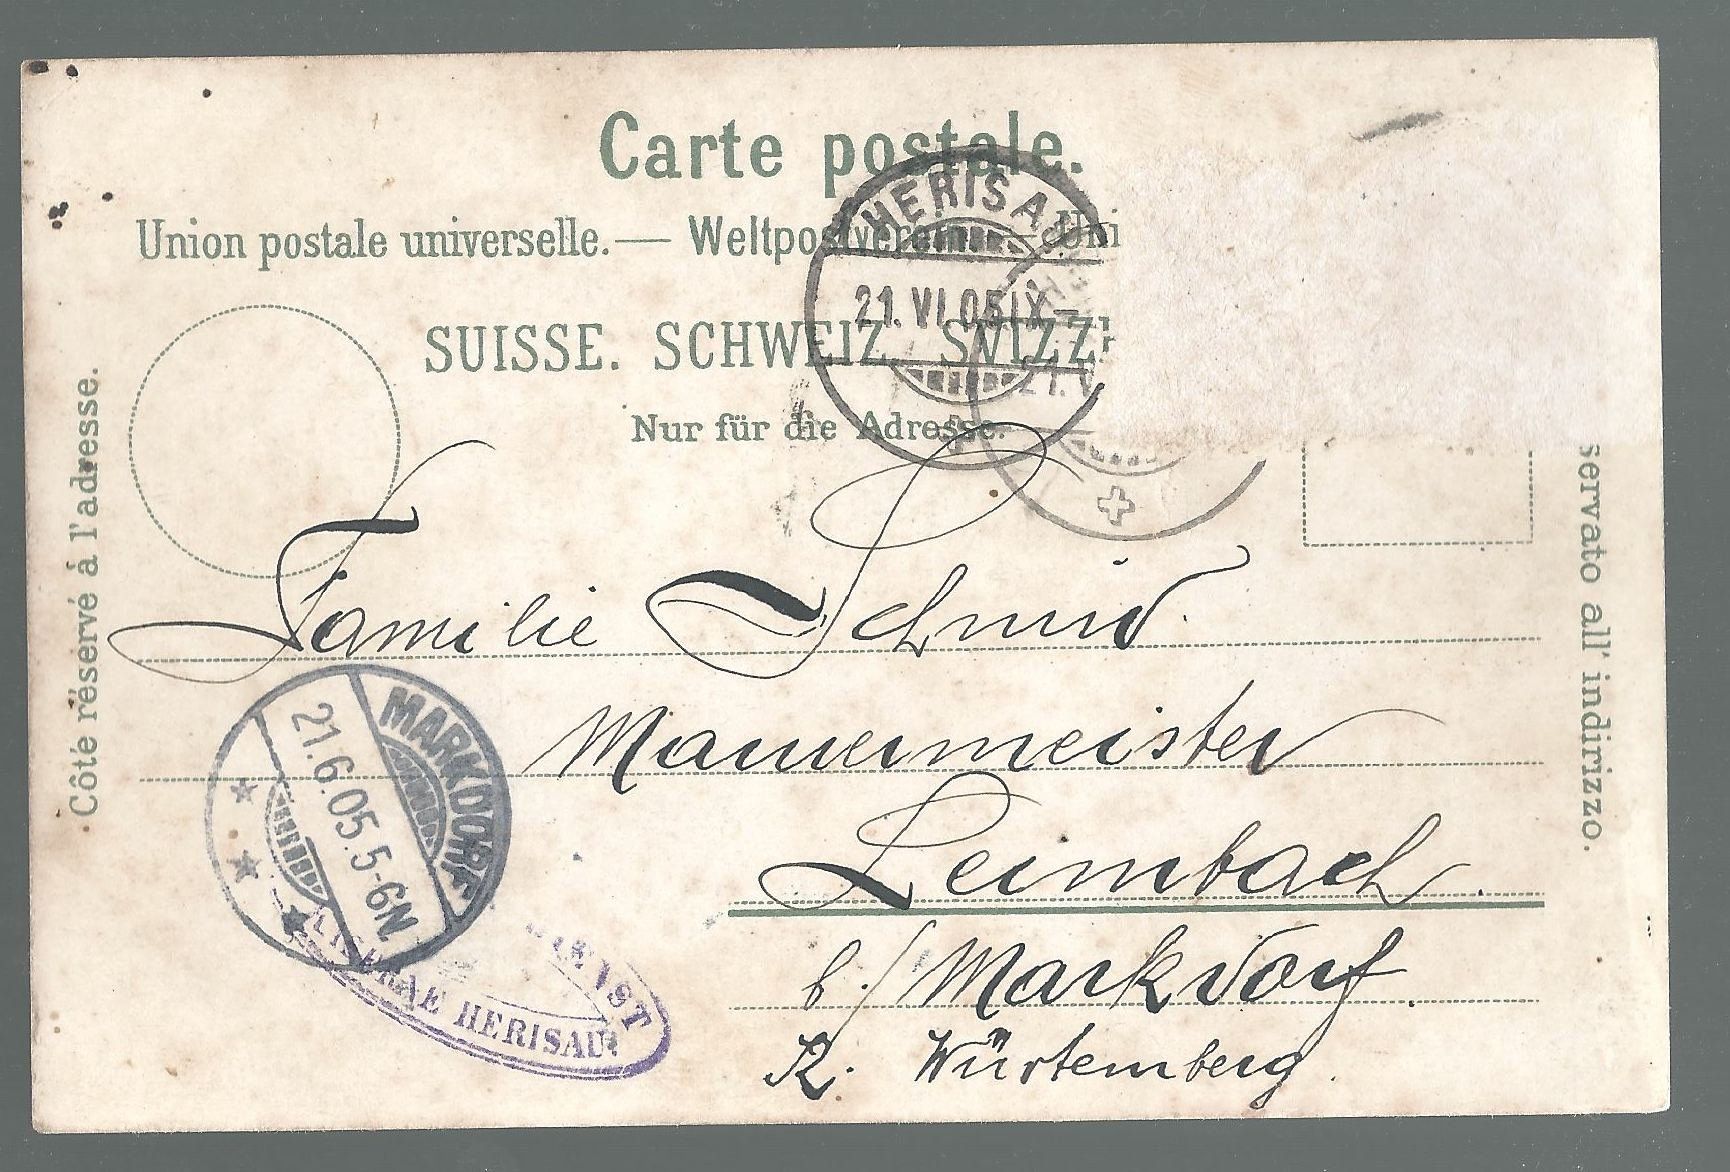 Carte postale.
Union postale universelle. — Weltpostverein — Uni
SUISSE. SCHWEIZ. SVIZZE
Nur für die Adresse.
Côté réservé à l'adresse.
servato all' indirizzo.
HERISAU
21. VI. 05 IX–
21. V
Familie Schmid.
Maurermeister
Leimbach.
b./ Markdorf.
K. Württemberg.
MARKDORF
21.6.05.5-6N.
HERISAU